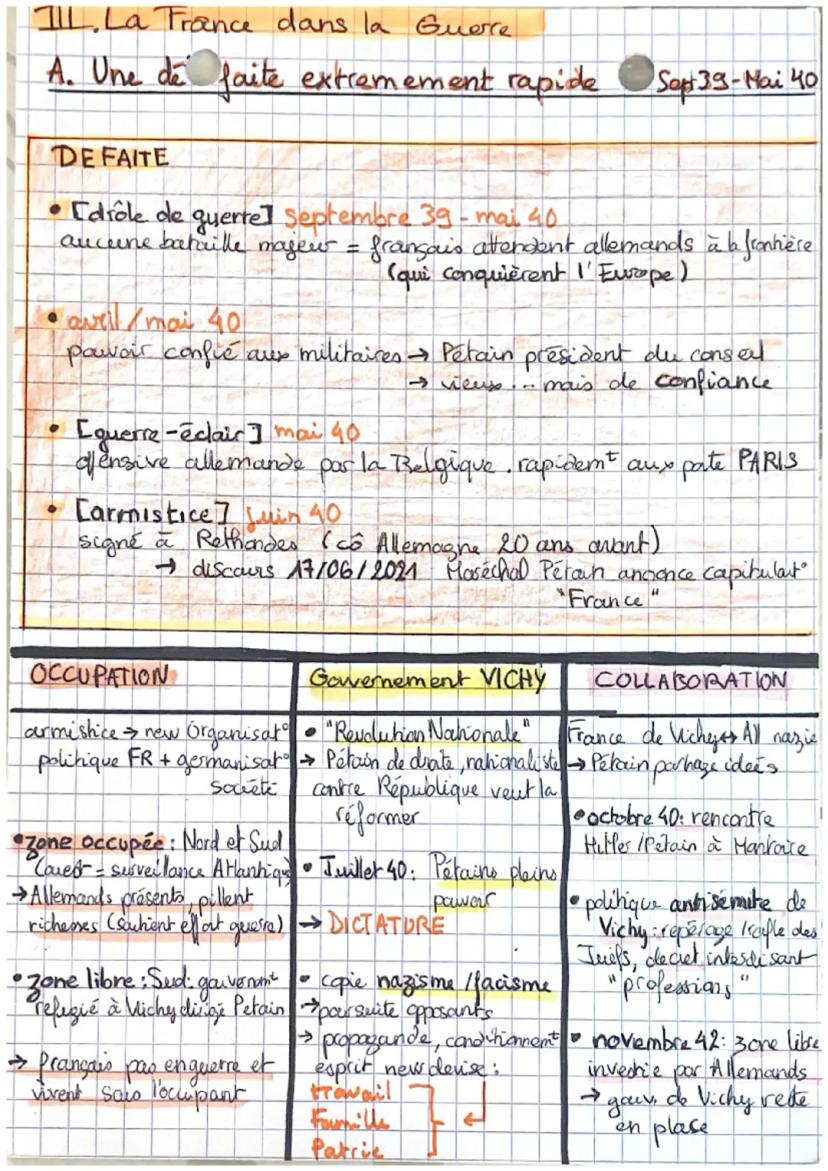 III. La France dans la Guerre
A. Une dé faite extremement rapide Sept 39 - Mai 40
DEFAITE
• [drôle de guerre] septembre 39 - mai 40
aucune bataille majeur = français attendent allemands à la frontière
(qui conquièrent l'Europe)
• avril/mai 40
pouvoir confié aux militaires → Pétain président du conseil
→ vieux... mais de confiance
• [guerre-éclair] mai 40
offensive allemande par la Belgique. rapidemt aux porte PARIS
• [armistice] juin 40
signé à Rethondes (cô Allemagne 20 ans avant)
→ discours 17/06/2021 Maréchal Pétain annonce capitulat°
"France"
OCCUPATION
armistice → new Organisat°
politique FR + germanisat°
société
• zone occupée : Nord et Sud
(ouest = surveillance Atlantiq)
→ Allemands présents, pillent
richesses (soutient effort guerre)
• zone libre : Sud: gouvernemt
refugié à Vichy dirigé Petain
→ français pas en guerre et
vivent sous l'occupant
Gouvernement VICHY
• "Revolution Nationale"
→ Pétain de droite, nationaliste
contre République veut la
réformer
• Juillet 40: Pétains pleins
pouvoir
→ DICTATURE
• copie nazisme / facisme
→ poursuite opposants
→ propagande, conditionnemt
esprit new devise :
travail
Famille
Patrie
COLLABORATION
France de Vichy ↔ All nazie
→ Pétain partage idées
• octobre 40: rencontre
Hitler / Pétain à Montoire
• politique antisémite de
Vichy: repérage / rafle des
Juifs, decret interdisant
"professions"
• novembre 42: zone libre
investie par Allemands
→ gouv. de Vichy reste
en place